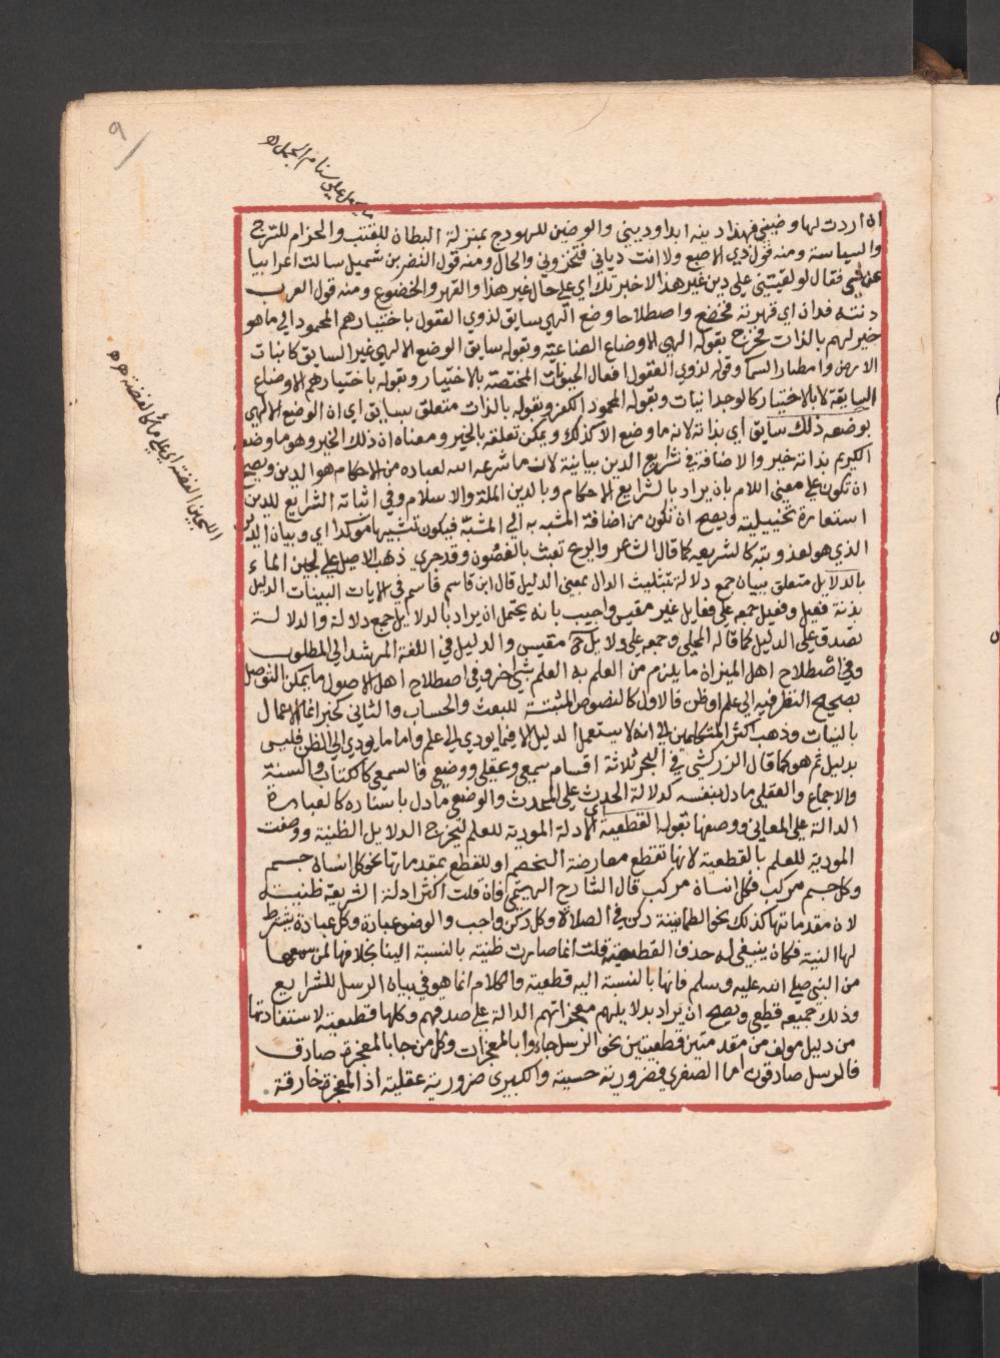 ٩
ما يجعل على سنام الجمل اه
اذا اردت لها وضيني فهذا دينه ابدا وديني والوضين للهودج بمنزلة البطان للقتب والحزام للسرج
والسياسة ومنه قول ذي الاصبع ولا انت دياني فتخزوني والحال ومنه قول النضر بن شميل سالت اعرابيا
عن شي فقال لو لقيتني على دين غير هذا لاخبرتك اي على حال غير هذا والقهر والخضوع ومنه قول العرب
دنته فدان اي قهرته فخضع واصطلاحا وضع الهي سايق لذوي العقول باختيارهم المحمود الي ما هو
خير لهم بالذات مخرج بقوله الهي الاوضاع الصناعية وبقوله سايق الوضع الالهي غير السايق كانبات
الارض وامطار السما وقوله لذوي العقول افعال الحيوانات المختصة بالاختيار وبقوله باختيارهم الاوضاع
السايقة لا بالاختيار كالوجدانيات وبقوله المحمود الكفر وبقوله بالذات متعلق بسايق اي ان الوضع الالهي
بوضعه ذلك سايق اي بذاته لانه ما وضع الا كذلك ويمكن تعلقه بالخير ومعناه ان ذلك الخير وهو ما وضعه
الكريم بذاته خير والاضافة في شرايع الدين بيانية لان ما شرعه الله لعباده من الاحكام هو الدين ويصح
ان تكون على معنى اللام بان يراد بالشرايع الاحكام وبالدين الملة والاسلام وفي اثباته الشرايع للدين
استعارة تخييلية ويصح ان تكون من اضافة المشبه به الي المشبه فيكون تشبيها موكدا اي وبيان الدين
الذي هو لعذوبته كالشريعه كما قال الشاعر والريح تعبث بالغصون وقد جرى ذهب الاصيل على لجين الماء
بالدلايل متعلق ببيان جمع دلالة بتثليث الدال بمعنى الدليل قال ابن قاسم في الايات البينات الدليل
بزنة فعيل وفعيل جمعه على فعايل غير مقيس واجيب بانه يحتمل ان يراد بالدلايل جمع دلالة والدلالة
تصدق على الدليل كما قاله المحلي وجمعه على دلايل ح مقيس والدليل في اللغة المرشد الى المطلوب
وفي اصطلاح اهل الميزان ما يلزم من العلم به العلم بشي اخر وفي اصطلاح اهل الاصول ما يمكن التوصل
بصحيح النظر فيه الى علم او ظن فالاول كالنصوص المثبتة للبعث والحساب والثاني كخبر انما الاعمال
بالنيات وذهب اكثر المتكلمين الى انه لا يستعمل الدليل الا فيما يودي الى علم واما ما يودي الى الظن فليس
بدليل ثم هو كما قال الزركشي في البحر ثلاثة اقسام سمعي وعقلي ووضعي فالسمعي كالكتاب والسنة
والاجماع والعقلي ما دل بنفسه كدلالة الحدث على المحدث والوضعي ما دل باسناده كالعبارة
الدالة على المعاني ووصفها بقوله القطعية اي الادلة المودية للعلم ليخرج الدلايل الظنية ووصفت
المودية للعلم بالقطعية لانها تقطع معارضة الخصم او للقطع بمقدماتها نحو كل انسان جسم
وكل جسم مركب فكل انسان مركب قال الشارح الهيتمي فان قلت اكثر ادلة الشريعة ظنية
لان مقدماتها كذلك نحو الطمانينة ركن في الصلاة وكل ركن واجب والوضو عبادة وكل عبادة يشترط
لها النية فكان ينبغي له حذف القطعية قلت انما صارت ظنية بالنسبة الينا بخلافها لمن سمعها
من النبي صلى الله عليه وسلم فانها بالنسبة اليه قطعية والكلام انما هو في بيان الرسل للشرايع
وذلك جميعه قطعي ويصح ان يراد بدلايلهم معجزاتهم الدالة على صدقهم وكلها قطعية لاستفادتها
من دليل مولف من مقدمتين قطعيتين نحو الرسل جاءوا بالمعجزات وكل من جا بالمعجزة صادق
فالرسل صادقون اما الصغرى فضرورية حسية والكبرى ضرورية عقلية اذ المعجزة خارقة
اللجين الفضة اي على ماء كالفضة اه